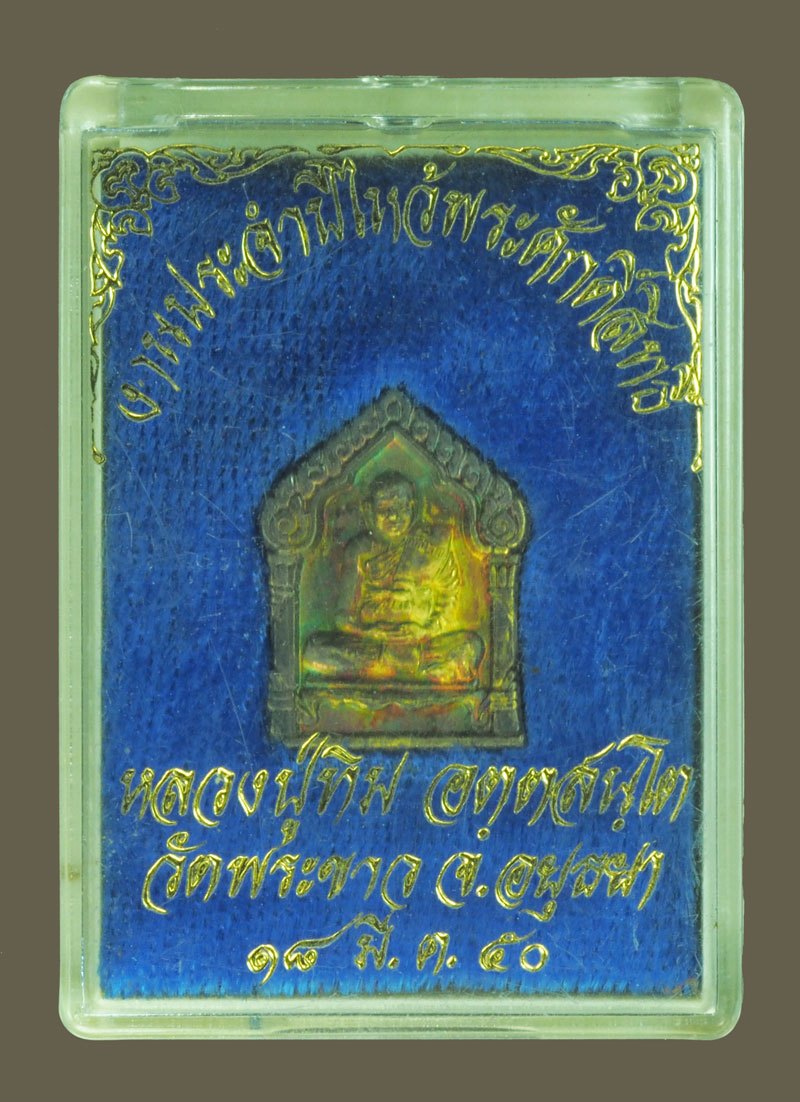 งานประจำปีไหว้พระศักดิ์สิทธิ์
หลวงปู่ทิม อตฺตสนฺโต
วัดพระขาว จ.อยุธยา
๑๘ มี.ค. ๕๐